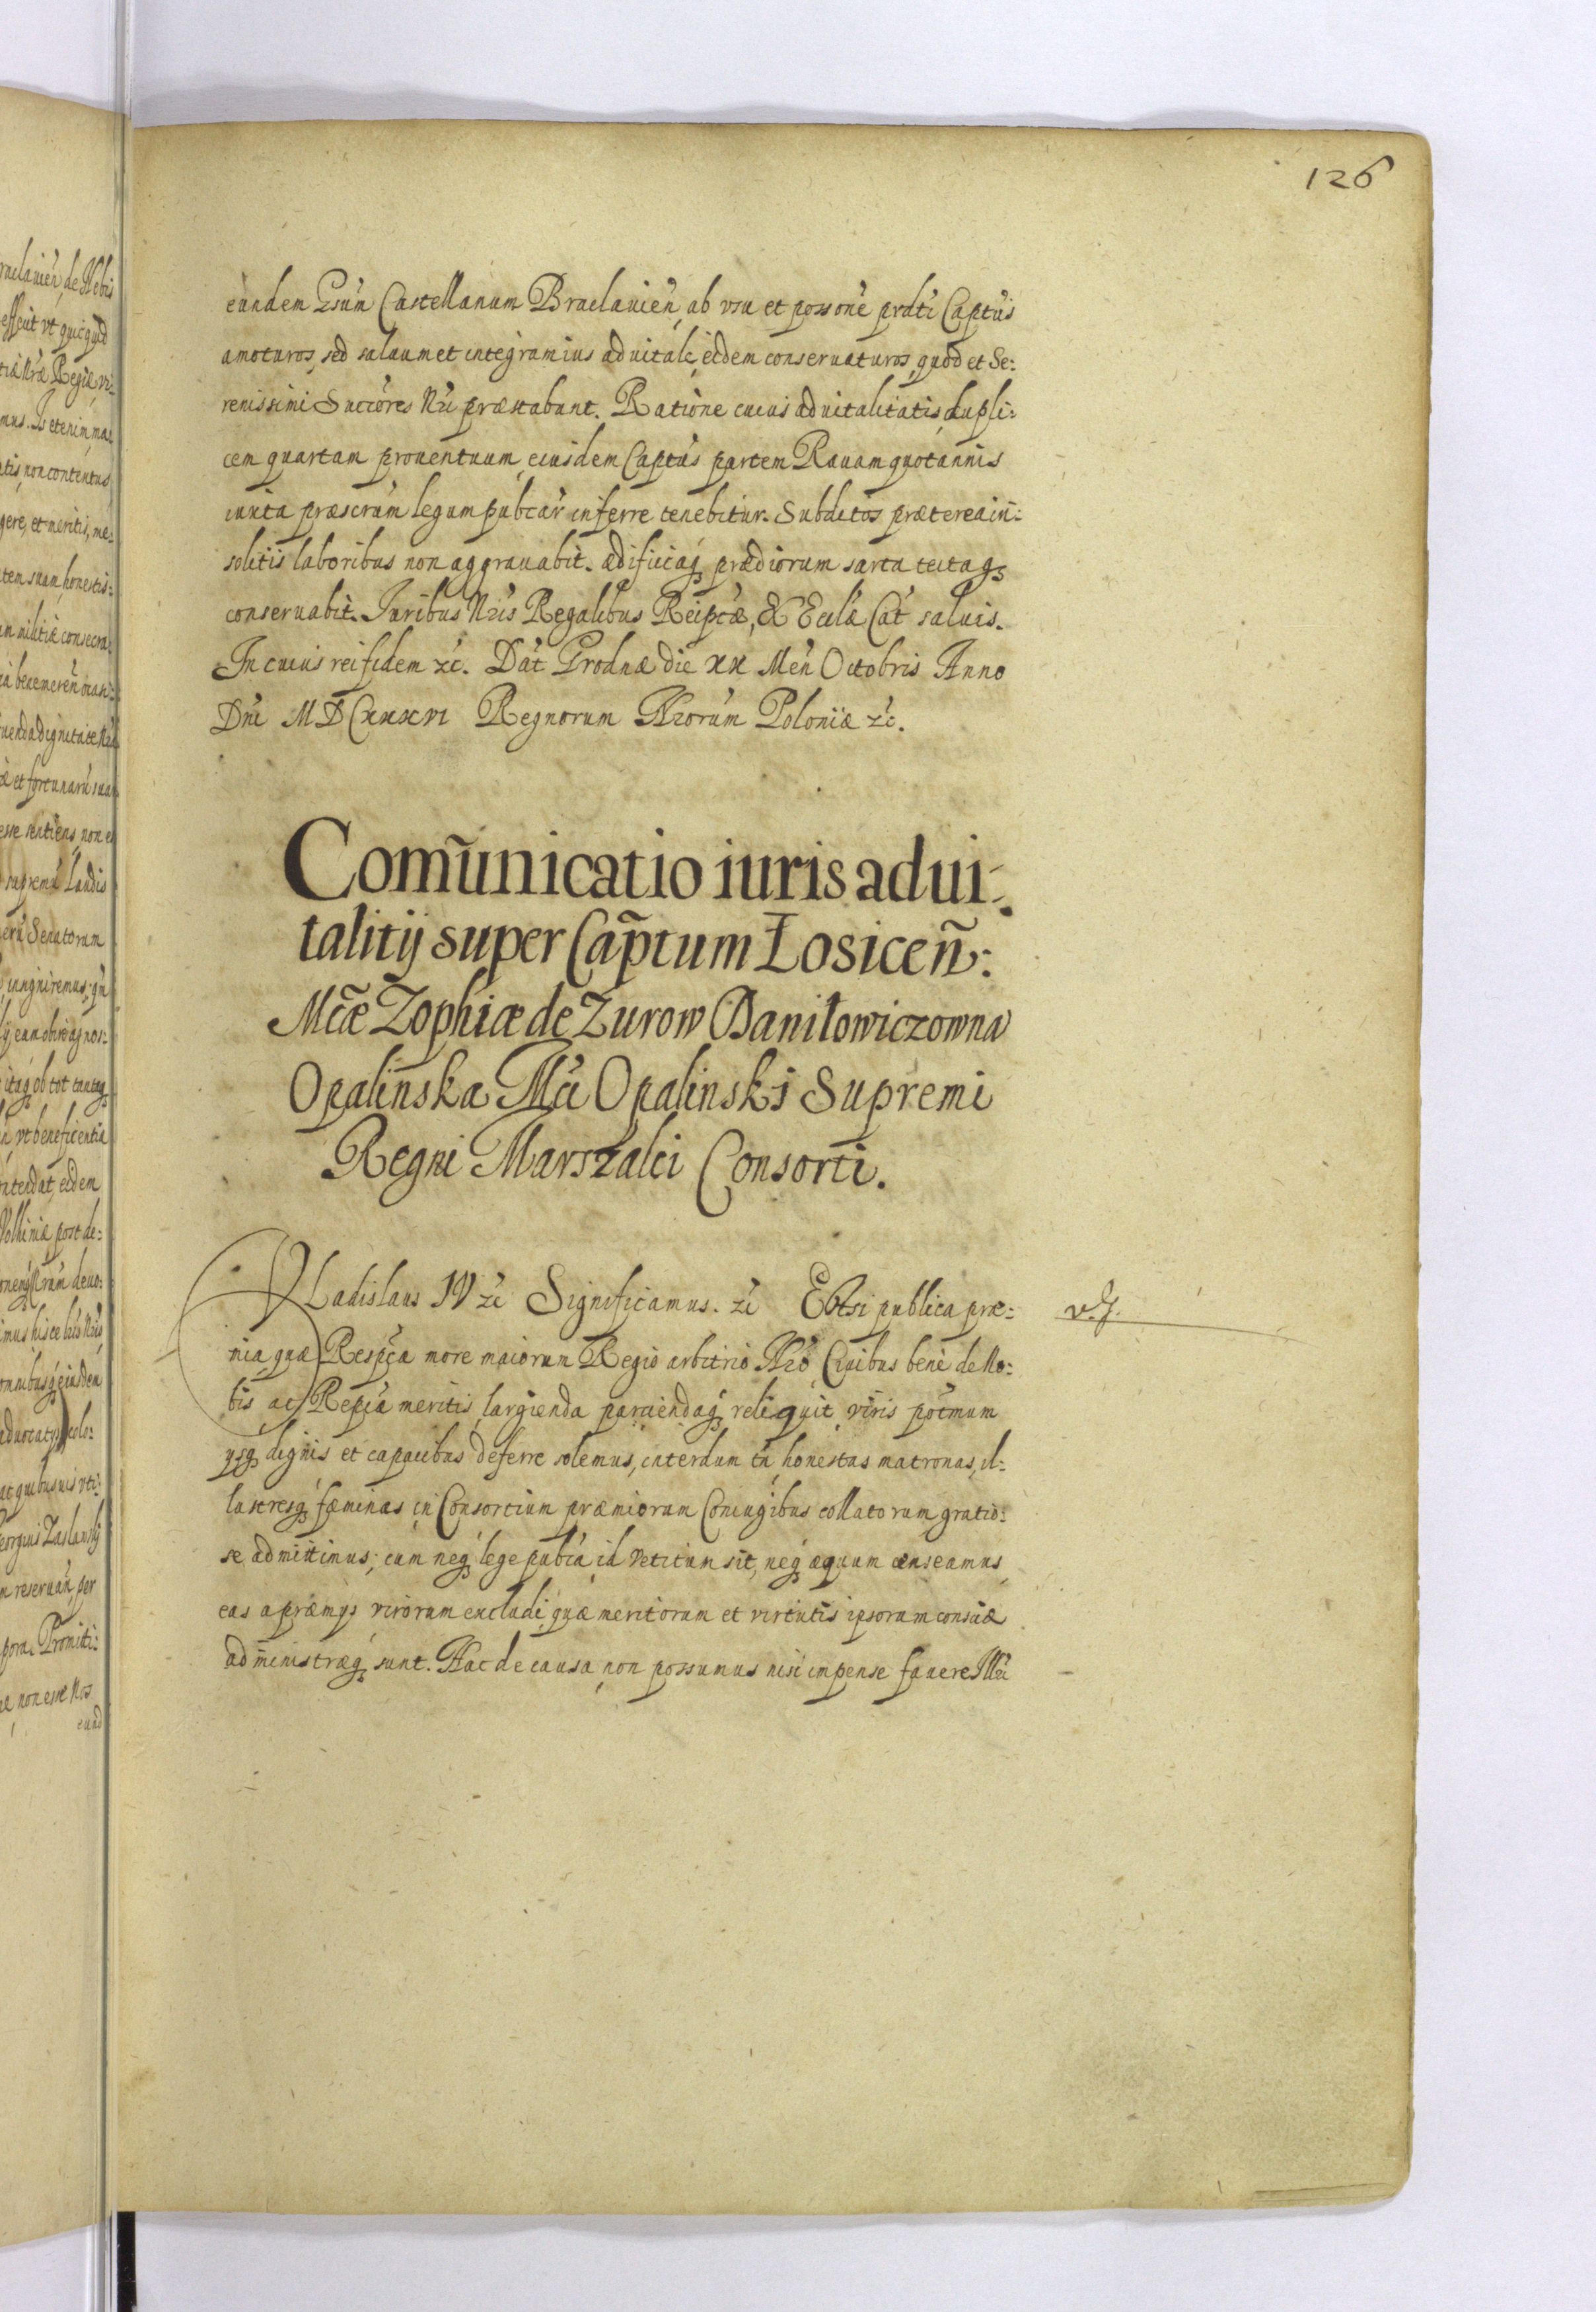 126
eundem Gsūm Castellanum Braclauień, ab vsu et possone prdti Captus
amoturos, sed saluum et integrum ius aduitale, eidem conseruaturos, quod et Se:
renissimi Succores Nri præstabunt. Ratione cuius aduitalitatis, dupli:
cem quartam prouentuum, eiusdem Captus partem Rauam quotannis
iuxta præscrūm legum publcar̃ inferre tenebitur. Subditos præterea in:
solitis laboribus non aggrauabit. ædificiaq prædiorum sarta tectaq
conseruabit. Iuribus Nris Regalibus Reipcæ, & Ecclæ Cat saluis.
In cuius rei fidem zc. Dat Grodnæ die xx Meń Octobris Anno
Dni MDCxxxvi Regnorum Nrorum Poloniæ zc.
Com̃unicatio iuris adui:
talitij super Cap̃tum Łosiceñ:
Mcæ Zophiæ de Zurow Daniłowiczowna
Opalinska Mci Opalinski Supremi
Regni Marszalci Consorti.
VLadislaus IV zc Significamus. zc Etsi publica præ:
v. J.
mia quæ Respca more maiorum Regio arbitrio Nro Ciuibus bene de No:
bis ac Repca meritis, largienda parciendaq reliquit, viris potmum
ysq dignis et capacibus deferre solemus, interdum tn honestas matronas, il:
lustresq fæminas in Consortium præmiorum Coniugibus collatorum gratio:
se admittimus; cum neq lege publca id vetitum sit, neq æquum censeamus,
eas a præmijs virorum excludi, quæ meritorum et virtutis ipsorum consciæ
administræq sunt. Hac de causa, non possumus nisi impense fauere Mci